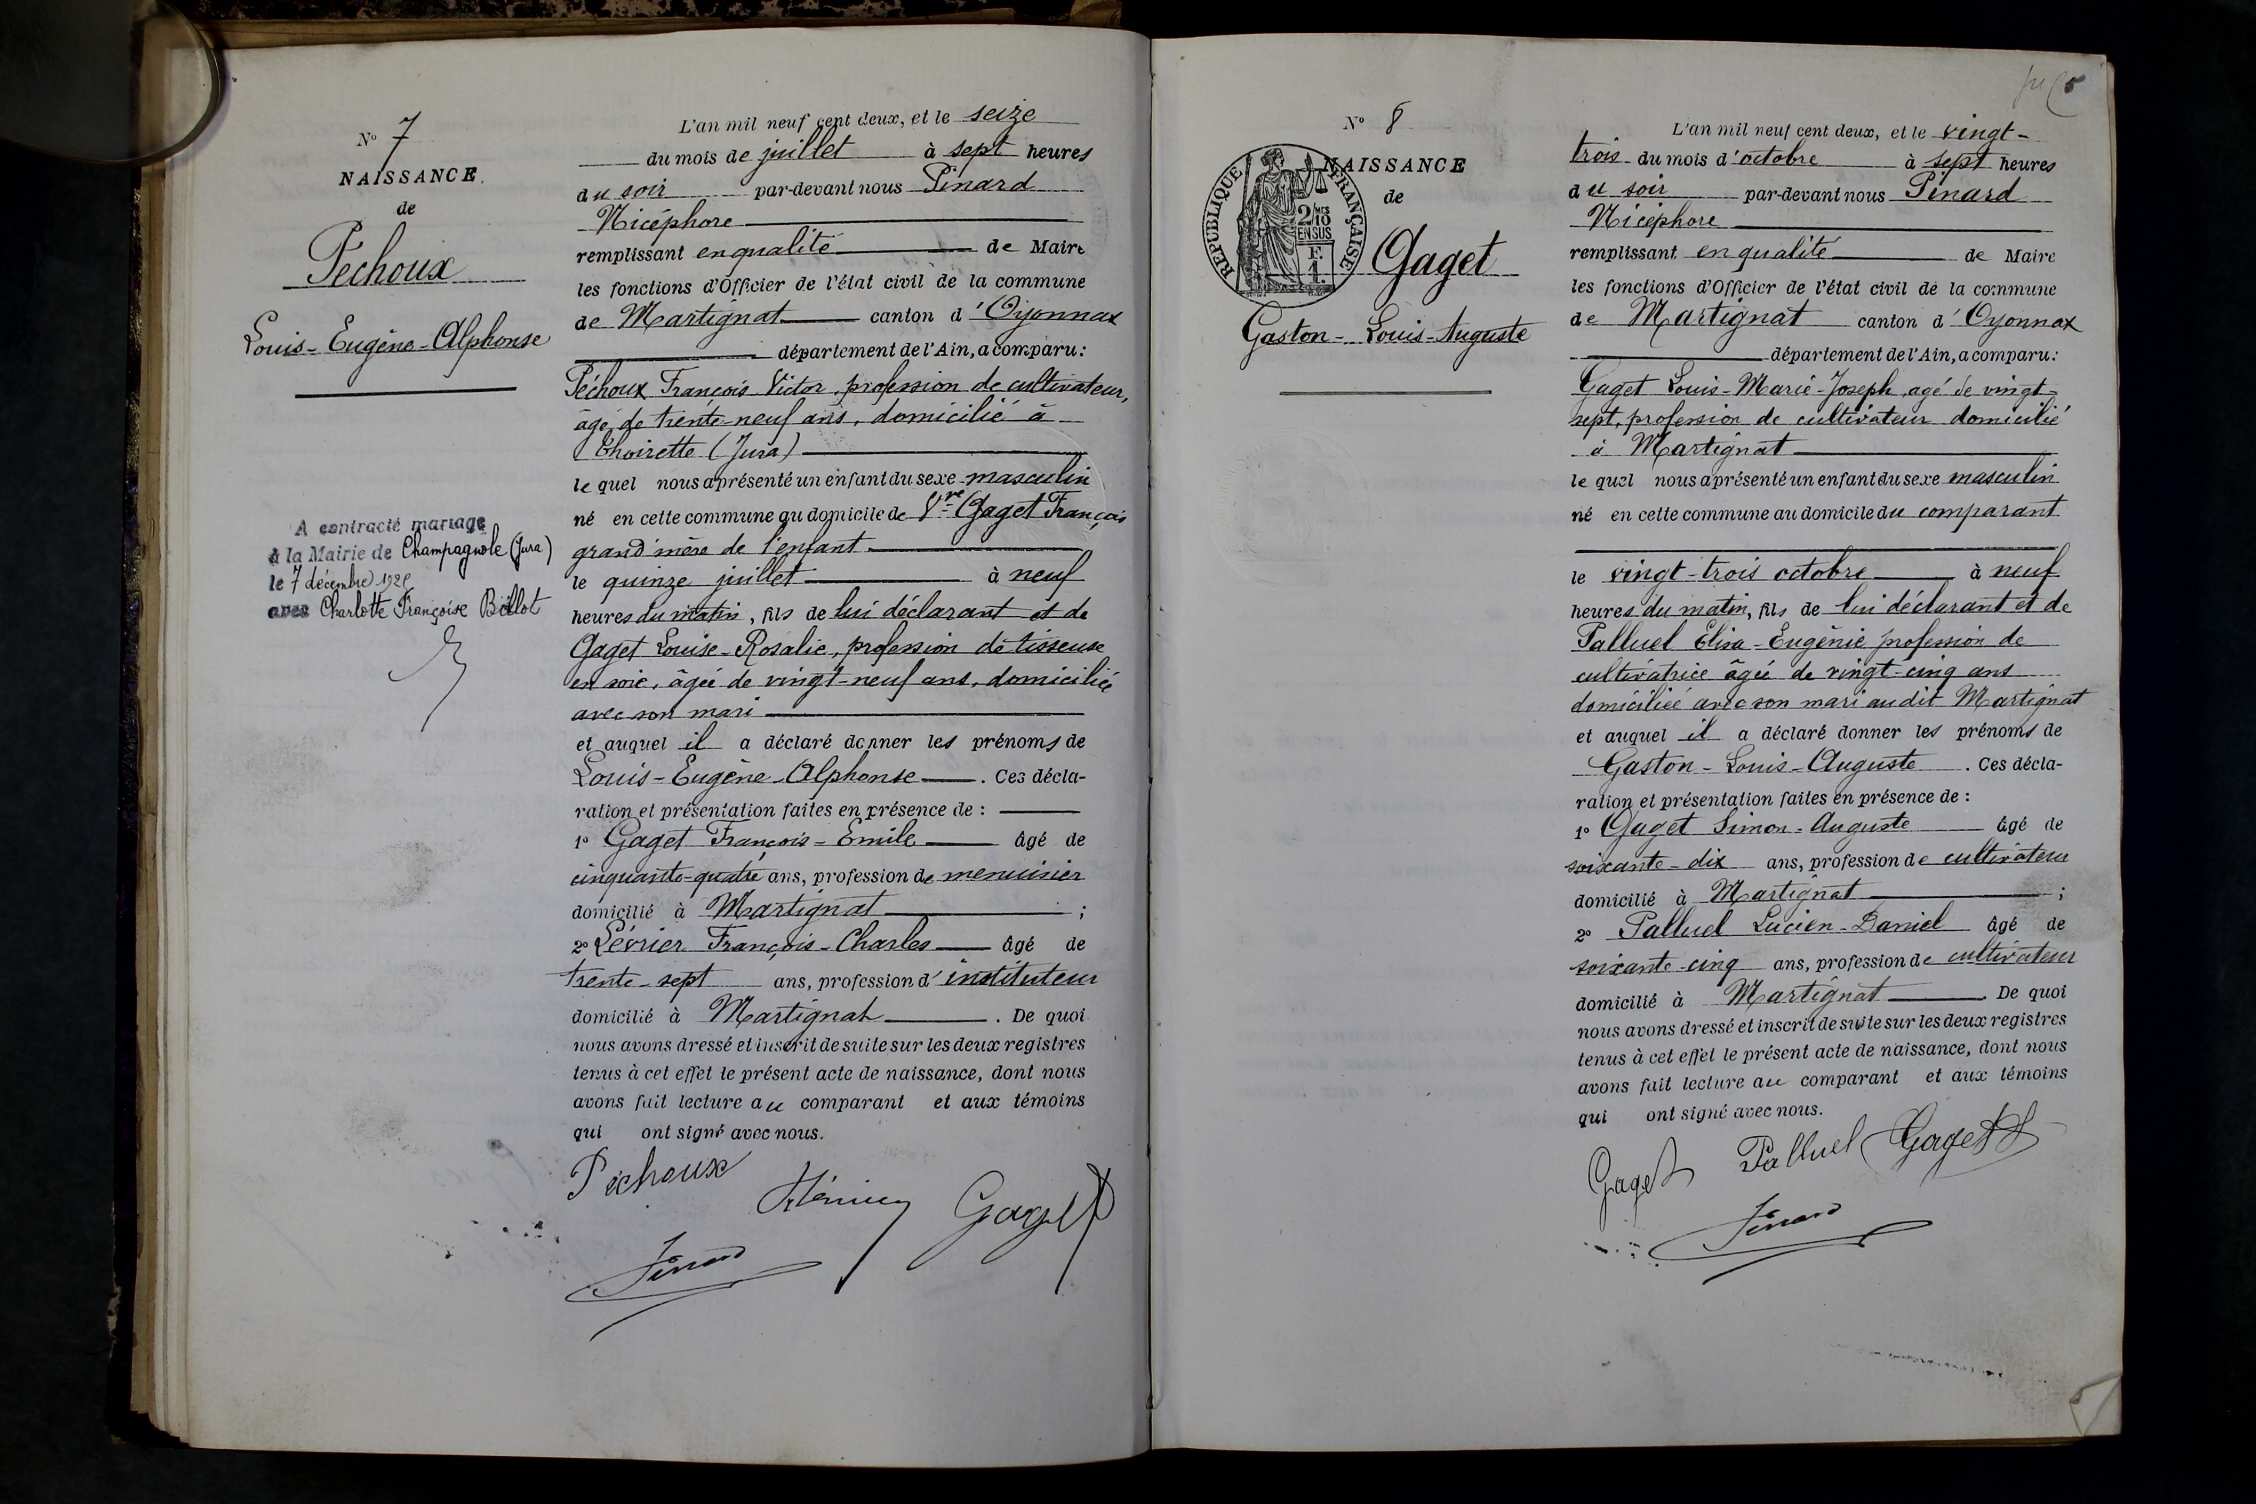 N° 7
NAISSANCE
de
Péchoux
Louis-Eugène-Alphonse
A contracté mariage
à la Mairie de Champagnole (Jura)
le 7 décembre
avec Charlotte Françoise Billot
L'an mil neuf cent deux, et le seize
du mois de juillet à sept heures
du soir par-devant nous Pinard
Nicéphore
remplissant en qualité de Maire
les fonctions d'Officier de l'état civil de la commune
de Martignat canton d'Oyonnax
département de l'Ain, a comparu:
Péchoux François Victor, profession de cultivateur,
âgé de trente-neuf ans, domicilié à
Thoirette (Jura)
lequel nous a présenté un enfant du sexe masculin
né en cette commune au domicile de Vve Gaget François
grand'mère de l'enfant
le quinze juillet à neuf
heures du matin, fils de lui déclarant et de
Gaget Louise-Rosalie, profession de tisseuse
en soie, âgée de vingt-neuf ans, domiciliée
avec son mari
et auquel il a déclaré donner les prénoms de
Louis-Eugène-Alphonse. Ces décla-
ration et présentation faites en présence de :
1° Gaget François-Emile âgé de
cinquante-quatre ans, profession de menuisier
domicilié à Martignat ;
2° Lévrier François-Charles âgé de
trente-sept ans, profession d'instituteur
domicilié à Martignat. De quoi
nous avons dressé et inscrit de suite sur les deux registres
tenus à cet effet le présent acte de naissance, dont nous
avons fait lecture au comparant et aux témoins
qui ont signé avec nous.
Péchoux
Gaget
Pinard
N° 8
NAISSANCE
de
RÉPUBLIQUE FRANÇAISE
2/10 EN SUS
F. 1.
Gaget
Gaston-Louis-Auguste
L'an mil neuf cent deux, et le vingt-
trois du mois d'octobre à sept heures
du soir par-devant nous Pinard
Nicéphore
remplissant en qualité de Maire
les fonctions d'Officier de l'état civil de la commune
de Martignat canton d'Oyonnax
département de l'Ain, a comparu:
Gaget Louis-Marie-Joseph, agé de vingt-
sept, profession de cultivateur domicilié
à Martignat
lequel nous a présenté un enfant du sexe masculin
né en cette commune au domicile du comparant
le vingt-trois octobre à neuf
heures du matin, fils de lui déclarant et de
Palluel Elisa-Eugénie profession de
cultivatrice âgée de vingt-cinq ans
domiciliée avec son mari audit Martignat
et auquel il a déclaré donner les prénoms de
Gaston-Louis-Auguste. Ces décla-
ration et présentation faites en présence de :
1° Gaget Simon-Auguste âgé de
soixante-dix ans, profession de cultivateur
domicilié à Martignat ;
2° Palluel Lucien-Daniel âgé de
soixante-cinq ans, profession de cultivateur
domicilié à Martignat. De quoi
nous avons dressé et inscrit de suite sur les deux registres
tenus à cet effet le présent acte de naissance, dont nous
avons fait lecture au comparant et aux témoins
qui ont signé avec nous.
Gaget Palluel Gaget
Pinard